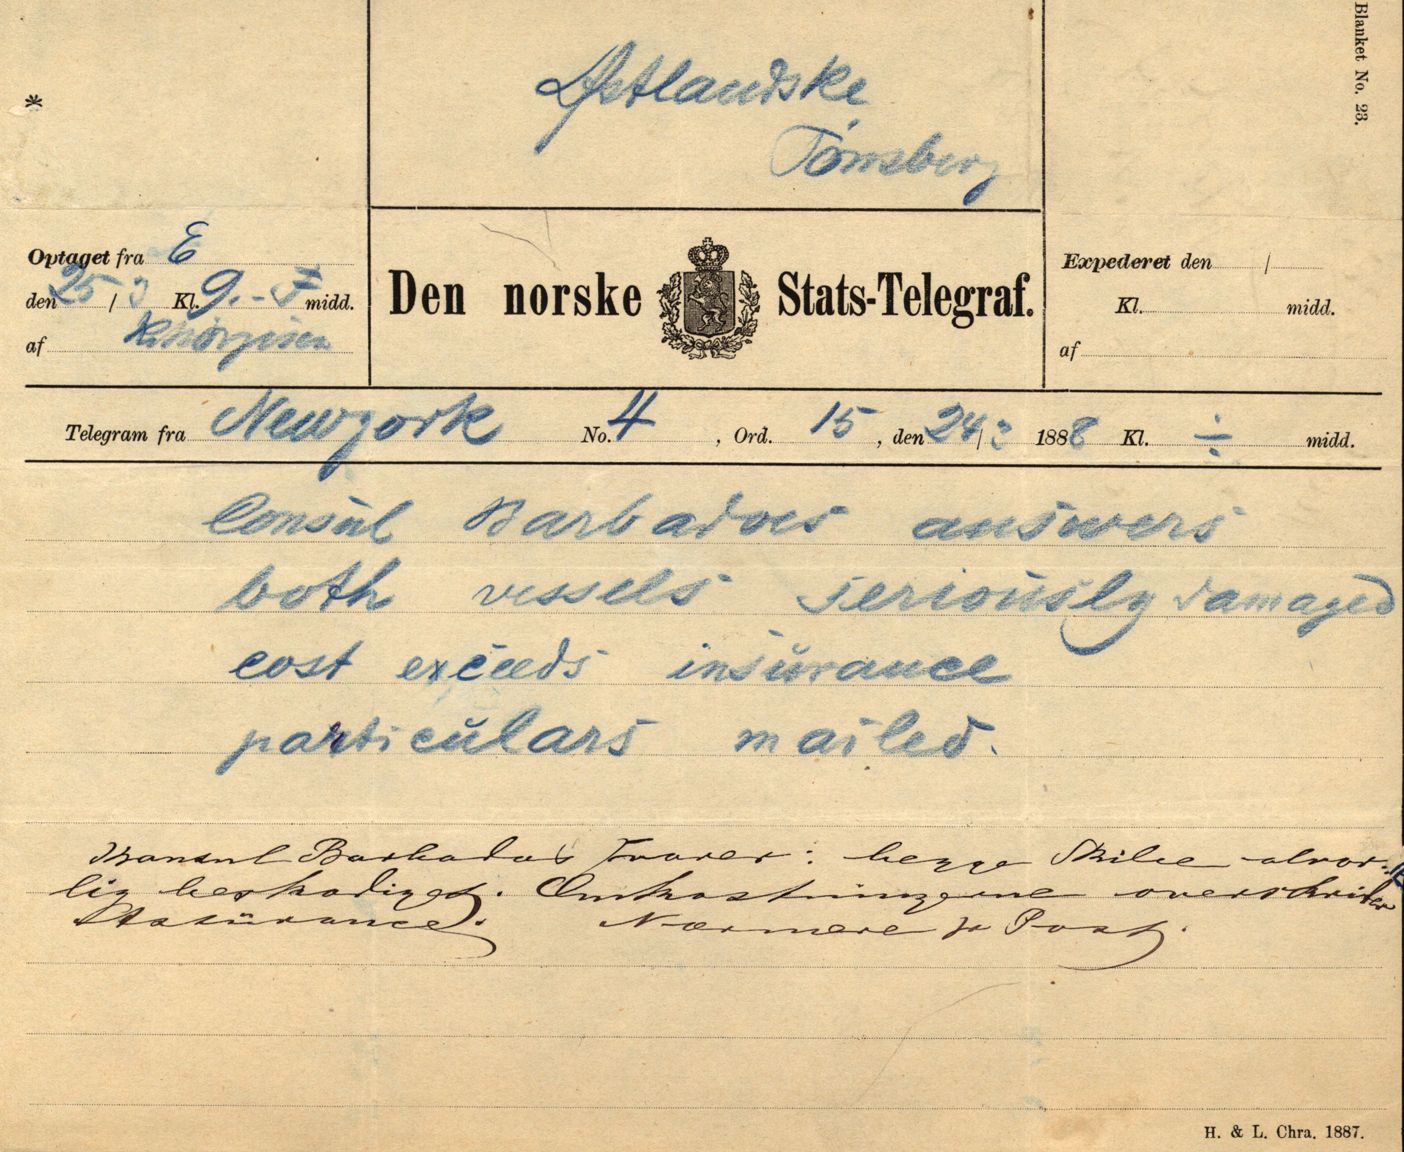 Blanket No. 23.
*
Østlandske
Tønsberg
Optaget fra E
den 25/3 Kl. 9.- F midd.
af
Den norske Stats-Telegraf.
Expederet den /
Kl. midd.
af
Telegram fra Newyork No. 4, Ord. 15, den 24/3 1888 Kl. ÷ midd.
Consul Barbadoes answers
both vessels seriously damaged
cost exceeds insurance
particulars mailed.
Konsul Barbados svarer: begge Skibe alvor-
lig beskadiget. Omkostningerne overskrider
Assurance. Nærmere pr Post.
H. & L. Chra. 1887.